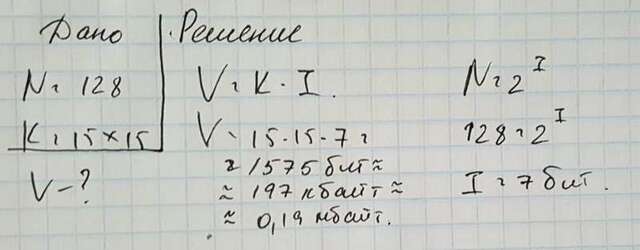 Дано
N = 128
K = 15×15
V - ?
Решение
V = K · I.
V = 15·15·7 =
= 1575 бит ≈
≈ 197 кбайт ≈
≈ 0,19 мбайт.
N = 2^I
128 = 2^I
I = 7 бит.